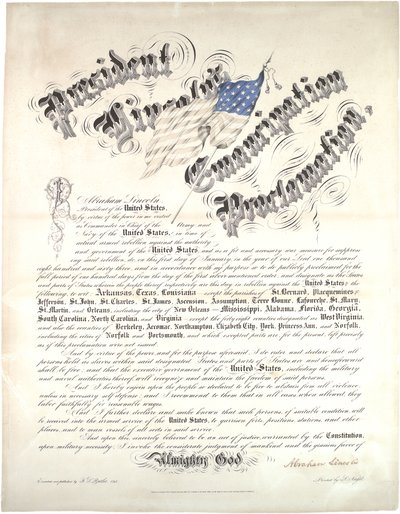 President
Lincoln's
Emancipation
Proclamation.
I, Abraham Lincoln
President of the United States,
by virtue of the power in me vested
as Commander in Chief of the Army and
Navy of the United States, in time of
actual armed rebellion against the authority
and government of the United States, and as a fit and necessary war measure for suppress
ing said rebellion, do, on this first day of January, in the year of our Lord one thousand
eight hundred and sixty three, and in accordance with my purpose so to do, publicly proclaimed for the
full period of one hundred days from the day of the first above mentioned order, and designate as the States
and parts of States wherein the people thereof respectively are this day in rebellion against the United States the
following, to wit: Arkansas, Texas, Louisiana except the parishes of St. Bernard, Plaquemines,
Jefferson, St. John, St. Charles, St. James, Ascension, Assumption, Terre Bonne, Lafourche, St. Mary,
St. Martin, and Orleans, including the city of New Orleans Mississippi, Alabama, Florida, Georgia,
South Carolina, North Carolina, and Virginia except the forty eight counties designated as West Virginia,
and also the counties of Berkeley, Accomac, Northampton, Elizabeth City, York, Princess Ann, and Norfolk,
including the cities of Norfolk and Portsmouth, and which excepted parts are, for the present, left precisely
as if this proclamation were not issued.
And by virtue of the power, and for the purpose aforesaid, I do order and declare that all
persons held as slaves within said designated States and parts of States are and henceforward
shall be free; and that the executive government of the United States, including the military
and naval authorities thereof, will recognize and maintain the freedom of said persons.
And I hereby enjoin upon the people so declared to be free to abstain from all violence,
unless in necessary self defence; and I recommend to them that in all cases when allowed they
labor faithfully for reasonable wages.
And I further declare and make known that such persons of suitable condition will
be received into the armed service of the United States, to garrison forts, positions, stations, and other
places, and to man vessels of all sorts in said service.
And upon this, sincerely believed to be an act of justice, warranted by the Constitution,
upon military necessity, I invoke the considerate judgment of mankind and the gracious favor of
Almighty God
Abraham Lincoln